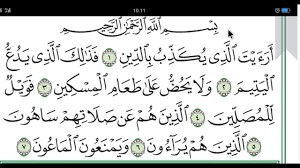 10.11
بِسْمِ اللَّهِ الرَّحْمَٰنِ الرَّحِيمِ
أَرَءَيْتَ الَّذِي يُكَذِّبُ بِالدِّينِ ١ فَذَٰلِكَ الَّذِي يَدُعُّ
الْيَتِيمَ ٢ وَلَا يَحُضُّ عَلَىٰ طَعَامِ الْمِسْكِينِ ٣ فَوَيْلٌ
لِّلْمُصَلِّينَ ٤ الَّذِينَ هُمْ عَن صَلَاتِهِمْ سَاهُونَ
٥ الَّذِينَ هُمْ يُرَاءُونَ ٦ وَيَمْنَعُونَ الْمَاعُونَ ٧